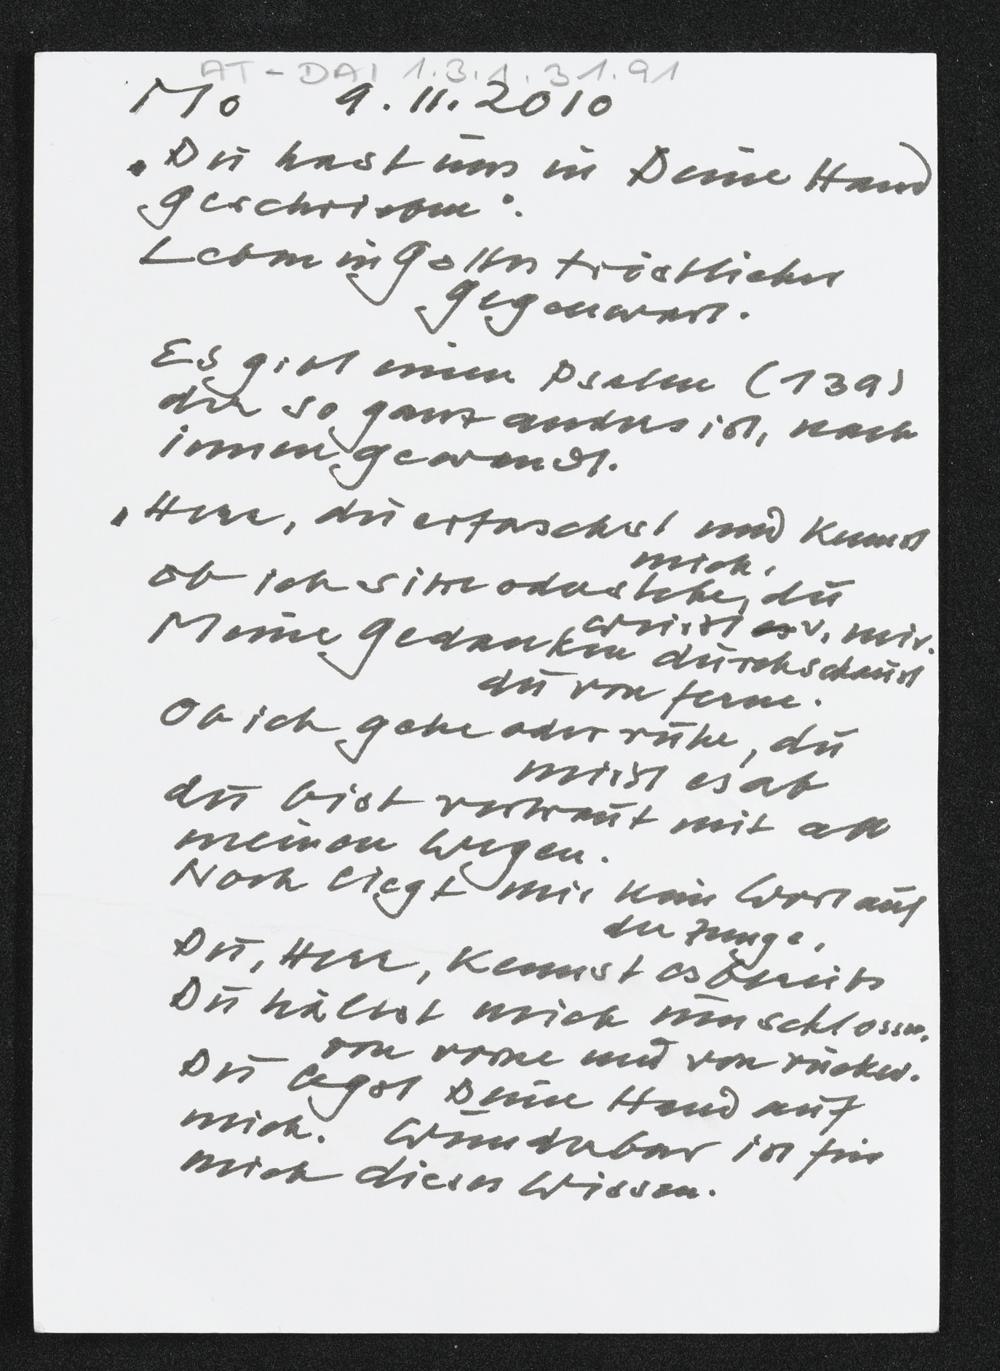 AT-DAI 1.3.1.31.91
Mo 9.11.2010
„Du hast uns in Deine Hand
geschrieben".
Leben in Gottes tröstlicher
Gegenwart.
Es gibt einen Psalm (139)
der so ganz anders ist, nach
innen gewandt.
„Herr, du erforschest und kennst
mich,
ob ich sitze oder stehe, du
weißt von mir.
Meine Gedanken durchschaust
du von ferne.
Ob ich gehe oder ruhe, du
mißt es ab
du bist vertraut mit all
meinen Wegen.
Noch liegt mir kein Wort auf
der Zunge,
Du, Herr, kennst es bereits
Du hältst mich umschlossen,
von vorne und von rücken.
Du legst Deine Hand auf
mich. Wunderbar ist für
mich dieses Wissen.